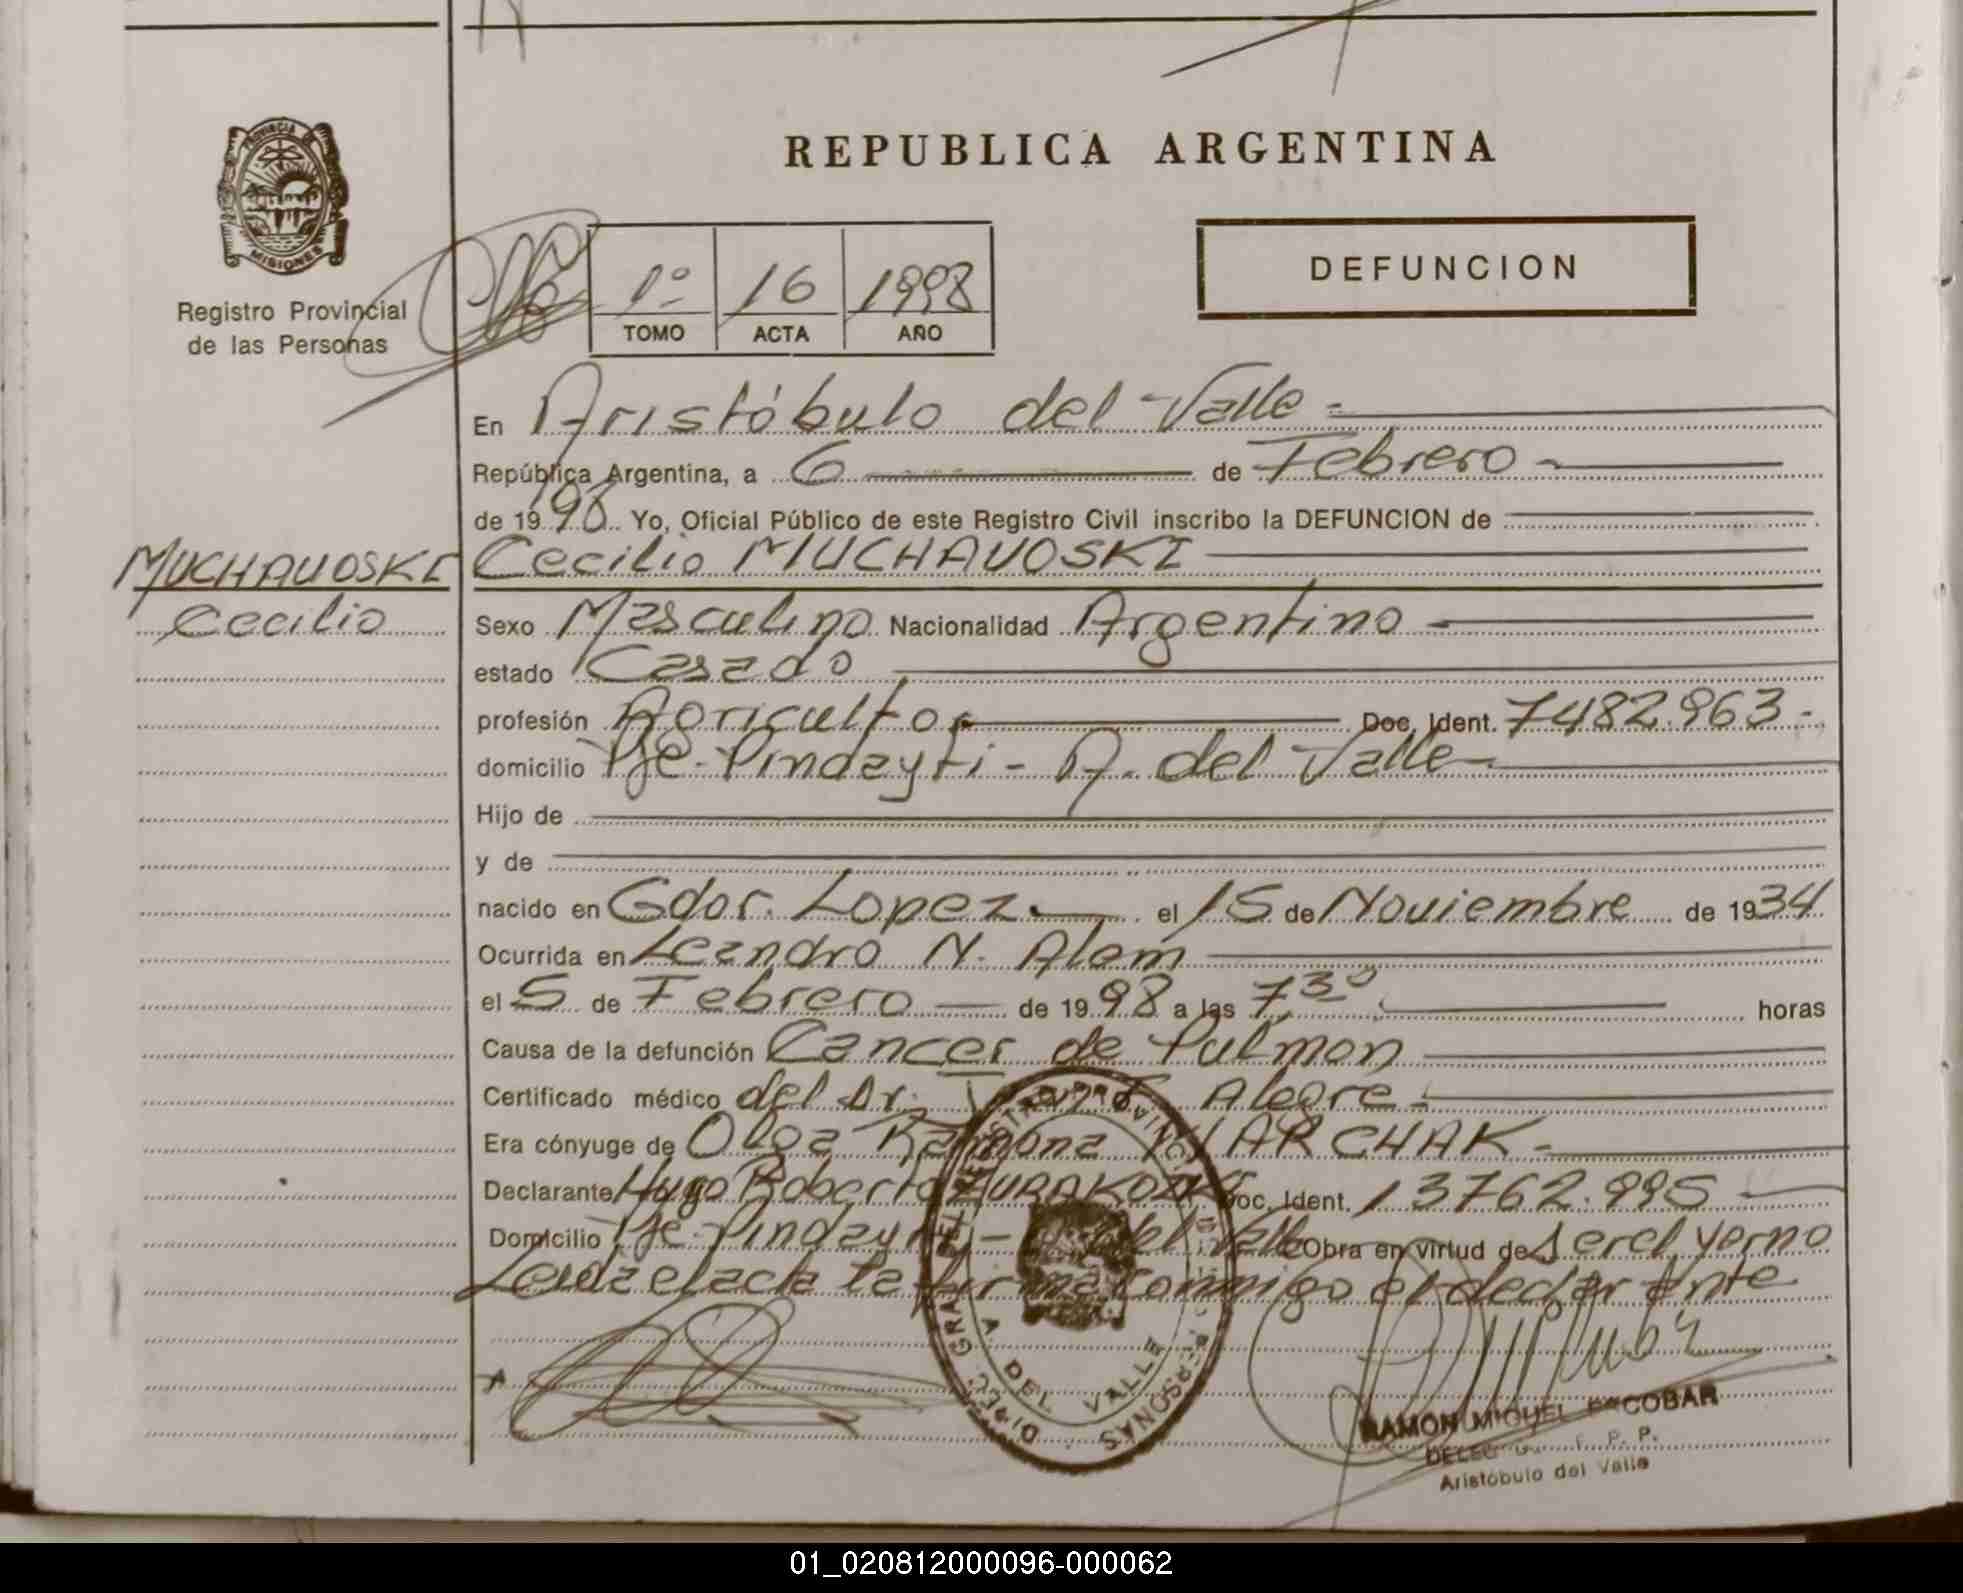 REPUBLICA ARGENTINA
PROVINCIA DE
MISIONES
Registro Provincial
de las Personas
1º 16 1998
TOMO ACTA AÑO
DEFUNCION
En Aristóbulo del Valle -
República Argentina, a 6 de Febrero -
de 1998 Yo, Oficial Público de este Registro Civil inscribo la DEFUNCION de
MUCHAVOSKI
Cecilio
Cecilio MUCHAVOSKI
Sexo Masculino Nacionalidad Argentino -
estado Casado
profesión Agricultor Doc. Ident. 7482.963-
domicilio Pje. Pindayti - A. del Valle -
Hijo de
y de
nacido en Gdor. Lopez. el 15 de Noviembre de 1934
Ocurrida en Leandro N. Alem
el 5 de Febrero de 1998 a las 7 30 horas
Causa de la defunción Cancer de Pulmon
Certificado médico del Dr. Alegre -
Era cónyuge de Olga Ramona WARCHAK -
Declarante Hugo Roberto Doc. Ident. 13762.995
Domicilio Pje. Pindayti - A. del Valle Obra en virtud de Ser el yerno
Leida el acta la firma conmigo el declarante
A. DEL VALLE
RAMON MIGUEL ESCOBAR
R. P. P.
Aristóbulo del Valle
01_020812000096-000062